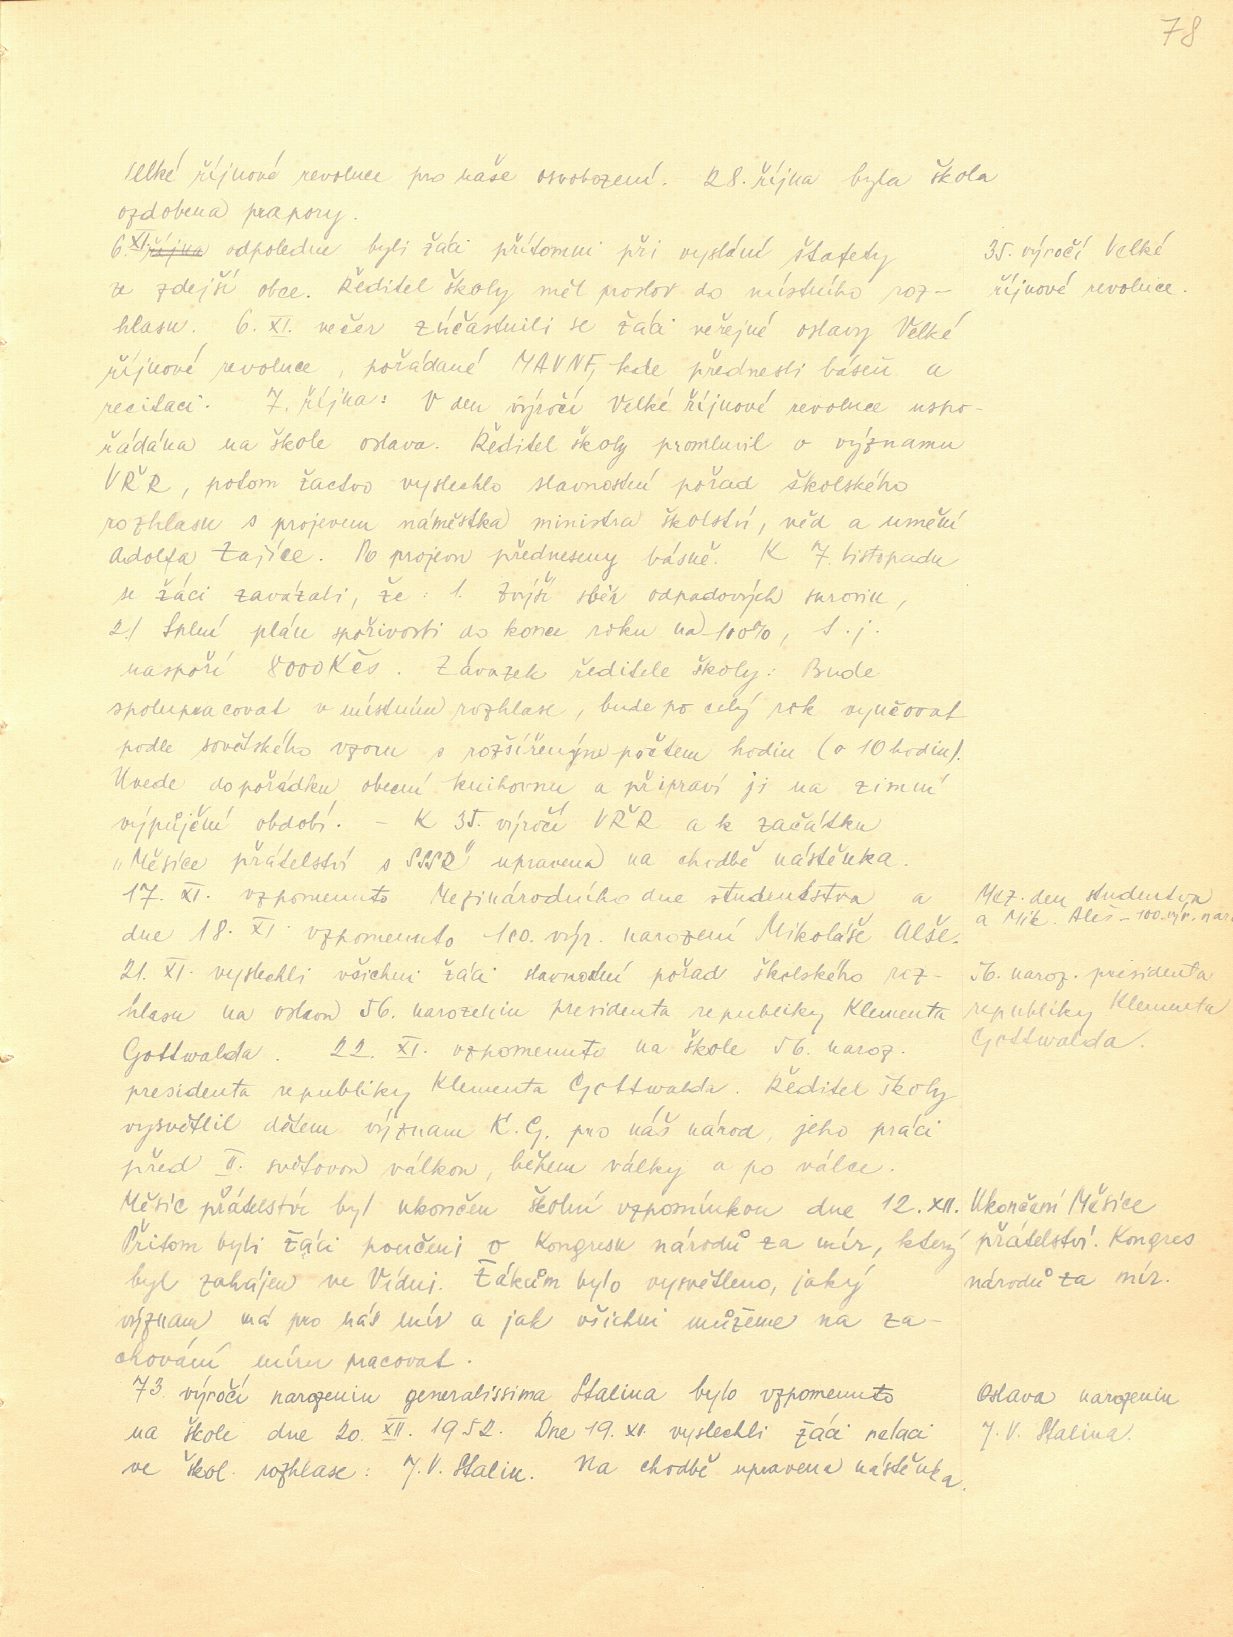 78
Velké říjnové revoluce pro naše osvobození. 28. října byla škola
ozdobena prapory.
6. XI. října odpoledne byli žáci přítomni při vyslání štafety
ze zdejší obce. Ředitel školy měl proslov do místního roz-
hlasu. 6. XI. večer zúčastnili se žáci veřejné oslavy Velké
říjnové revoluce, pořádané MAVNF, kde přednesli báseň a
recitaci. 7. října: V den výročí Velké říjnové revoluce uspo-
řádána na škole oslava. Ředitel školy promluvil o významu
VŘR, potom žactvo vyslechlo slavnostní pořad školského
rozhlasu s projevem náměstka ministra školství, věd a umění
Adolfa Zajíce. Po projevu předneseny básně. K 7. listopadu
se žáci zavázali, že: 1. Zvýší sběr odpadových surovin,
2/ Splní plán spořivosti do konce roku na 100%, t. j.
naspoří 8000 Kčs. Závazek ředitele školy: Bude
spolupracovat v místním rozhlase, bude po celý rok vyučovat
podle sovětského vzoru s rozšířeným počtem hodin (o 10 hodin).
Uvede do pořádku obecní knihovnu a připraví ji na zimní
výpůjční období. - K 35. výročí VŘR a k začátku
„Měsíce přátelství s SSSR" upravena na chodbě nástěnka.
17. XI. vzpomenuto Mezinárodního dne studentstva a
dne 18. XI. vzpomenuto 100. výr. narození Mikoláše Alše.
21. XI. vyslechli všichni žáci slavnostní pořad školského roz-
hlasu na oslavu 56. narozenin presidenta republiky Klementa
Gottwalda. 22. XI. vzpomenuto na škole 56. naroz.
presidenta republiky Klementa Gottwalda. Ředitel školy
vysvětlil dětem význam K. G. pro náš národ, jeho práci
před II. světovou válkou, během války a po válce.
Měsíc přátelství byl ukončen školní vzpomínkou dne 12. XII.
Přitom byli žáci poučeni o Kongresu národů za mír, který
byl zahájen ve Vídni. Žákům bylo vysvětleno, jaký
význam má pro nás mír a jak všichni můžeme na za-
chování míru pracovat.
73. výročí narozenin generalissima Stalina bylo vzpomenuto
na škole dne 20. XII. 1952. Dne 19. XII. vyslechli žáci relaci
ve škol. rozhlase: J. V. Stalin. Na chodbě upravena nástěnka.
35. výročí Velké
říjnové revoluce.
Mez. den studentva
a Mik. Aleš - 100. výr. nar.
56. naroz. presidenta
republiky Klementa
Gottwalda.
Ukončení Měsíce
přátelství. Kongres
národů za mír.
Oslava narozenin
J. V. Stalina.